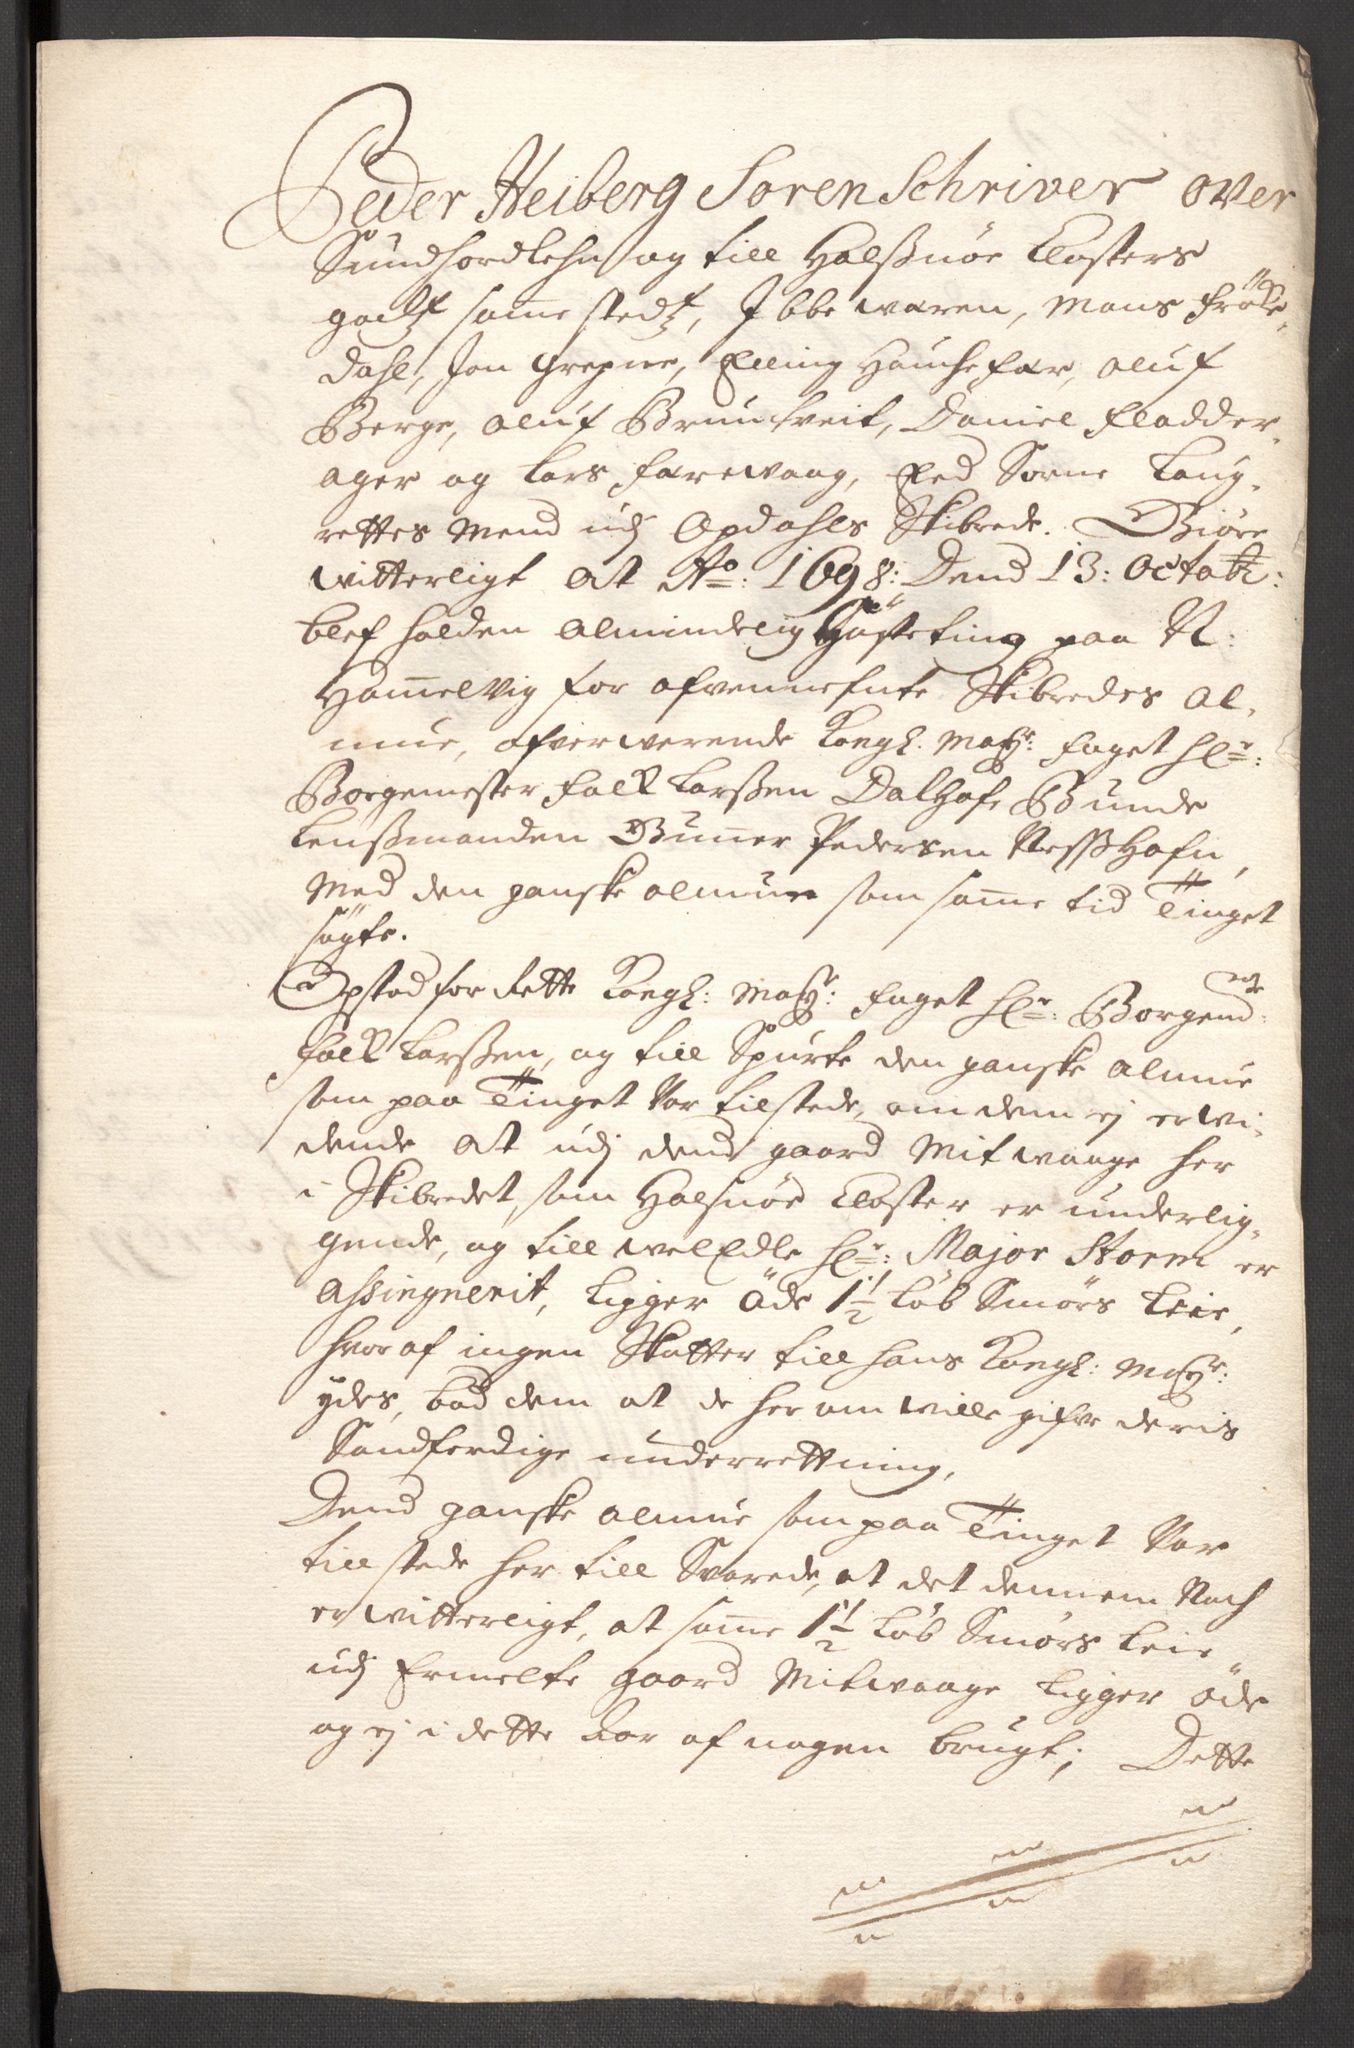 Peder Heiberg Soren Schriver over
Sundhordlehn og till Halssnöe Closters
godtz samme stedtz, Ibbe waren, Mons Fröke-
dahl, Jon Grepne, Elling Hauchefær, Oluf
Berge, Oluf Bruntveit, Daniel Fladder-
ager og Lars Farewaag, Eed Sorne Laug-
rettes Mend udj Opdahls Skibrede. Giöre
witterligt at Ao: 1698: Dend 13: Octobr:
blef holden almindelig Hösteting paa N:
Hammelvig for ofvennefnte Skibredes al-
mue, ofverwerende Kongl. Mayts: Faaget Hr:
Borgemester Falk Larssen Dalhof, Bunde
Lenssmanden Gunner Pedersen Nesshafn,
Med den ganske almue som samme tid Tinget
sögte.
Opstod for Rette Kongl: Mayts: Faaget Hr: Borgemd:
Falk Larssen, og till Spurte den ganske almue
som paa Tinget Var tilstede, om dem ej er wi-
dende at udj dend gaard Mitwaage her
i Skibredet, som Halsnöe Closter er underlig-
gende, og till welEdle Hr: Major Storm er
assingnerit, Ligger Öde 1½ Löb Smörs Leie,
hvor af ingen Skatter till hans Kongl: Mayts:
ydes, bad dem at de her om wille gifve deris
Sandferdige underrettning,
Dend ganske almue som paa Tinget Var
till stede her till Svarede, at det dennem Noch
er witterligt, at samme 1½ Löb Smörs Leie
udj Ermelte gaard Mitwaage Ligger öde
og ej i dette aar af nogen brugt; Dette